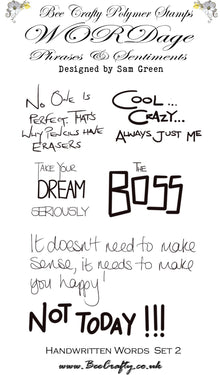 Bee Crafty Polymer Stamps
WORDage
Phrases & Sentiments
Designed by Sam Green
No One is
Perfect. That's
Why Pencils Have
Erasers
Cool...
Crazy...
Always Just Me
Take Your
DREAM
Seriously
The
Boss
It doesn't need to make
sense, it needs to make
you happy!
NOT TODAY !!!
Handwritten Words Set 2
www.BeeCrafty.co.uk